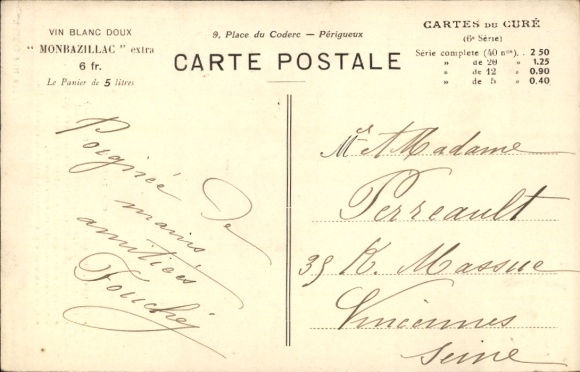 VIN BLANC DOUX
" MONBAZILLAC " extra
6 fr.
Le Panier de 5 litres
9, Place du Coderc — Périgueux
CARTE POSTALE
CARTES DU CURÉ
(6e Série)
Série complète (40 nos). 2 50
» de 20 » 1.25
» de 12 » 0.90
» de 5 » 0.40
Poignée De
mains
amitiés
Fouché
Mr & Madame
Perreault
35 R. Massue
Vincennes
Seine